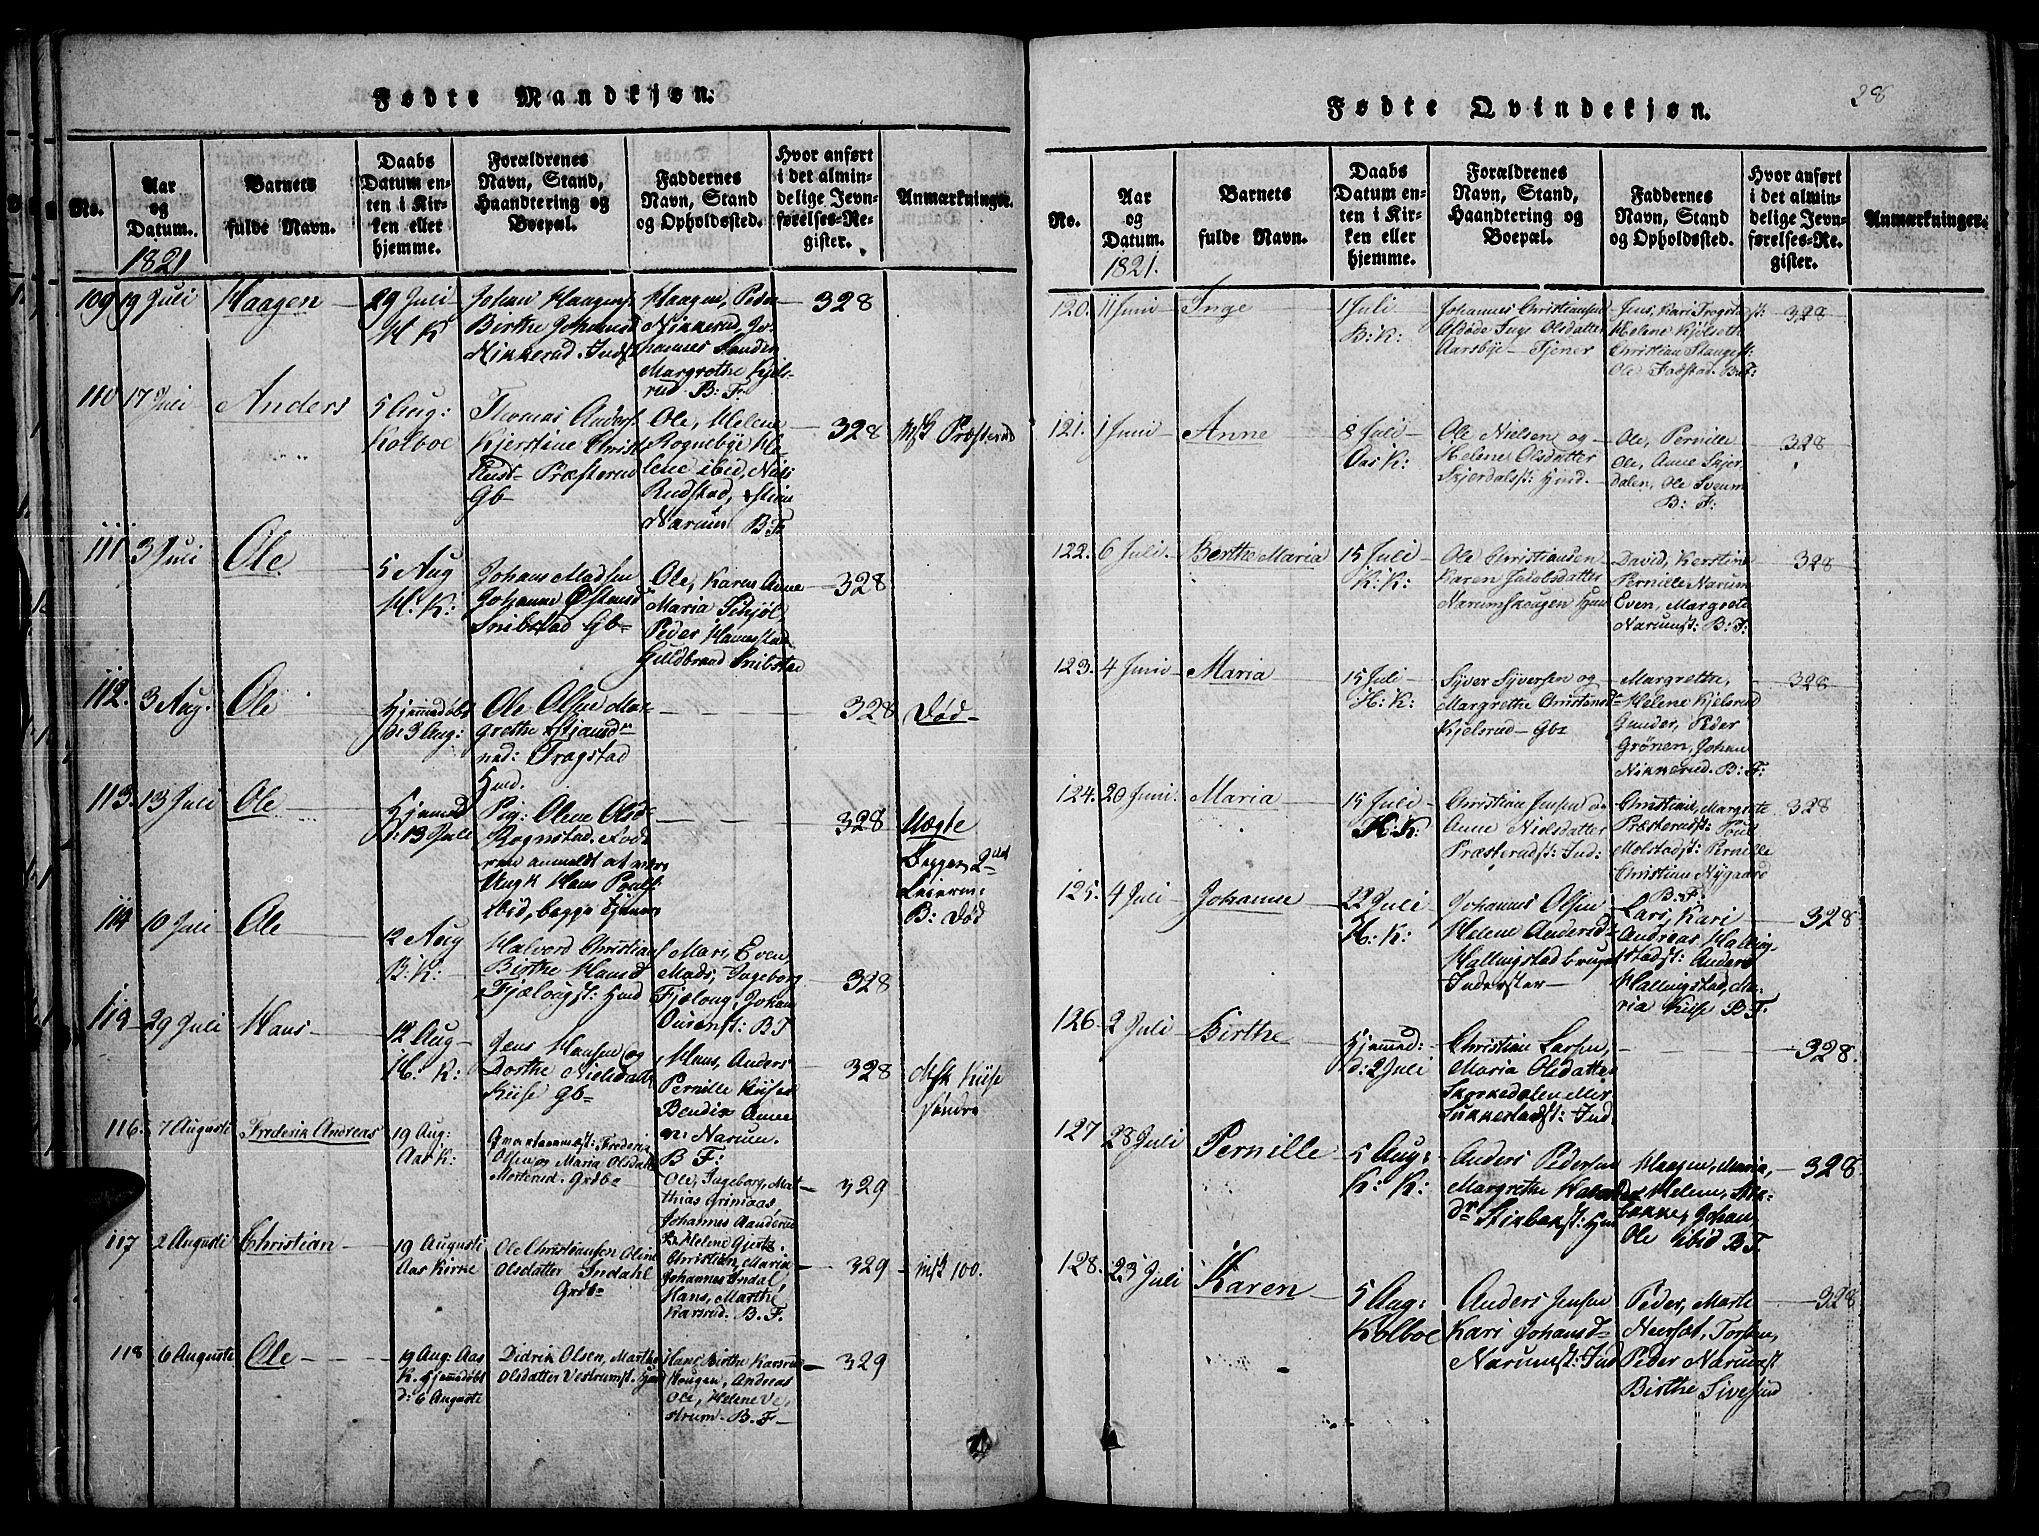 Fødte Mandkjøn.
No.
Aar
og
Datum.
1821
Barnets
fulde Navn.
Daabs
Datum en-
ten i Kir-
ken eller
hjemme.
Forældrenes
Navn, Stand,
Haandtering og
Boepæl.
Faddernes
Navn, Stand
og Opholdssted.
Hvor anført
i det almin-
delige Jevn-
førelses-Re-
gister.
Anmærkninger.
109 19 Juli
Haagen
29 Juli
H K
Johan Haagens
Birthe Johannesd
Nikkerud. Inds
Haagen, Peder
Nikkerud, Jo-
hannes
Margrethe Kjels-
rud. B: F:
328
110 17 Juli
Anders
5 Aug:
Kolboe
Thomas Anders
Kjerstine Christ
Præsterud
Gb
Ole, Helene
Rognebye
lene ibid, Niels
Rudstad, Stine
Narum B. F.
328
Præsterud
111 3 Juli
Ole
5 Aug
H: K:
Johans Madsen
Johanne Østensd
Snibstad Gb
Ole, Karen Anne
Maria
Peder
Guldbrand Snibstad
328
112. 3 Aug.
Ole
Hjemmedøbt
d: 3 Aug:
Ole Olsen Mar-
grethe
Tragstad
Hmd.
328
Død
113. 13 Juli
Ole
Hjemmed
d: 13 Juli
Pig: Olene Olsd
Rognstad.
anmeldt at være
Ungk Hans Pouls
ibid, begge tjener
328
Uægte
begges 2det
Leierm:
B: Død
114 10 Juli
Ole
12 Aug
B: K:
Halvord Christian
Birthe Hansd
Fjælougst: Hmd
Mari, Even,
Mads, Ingeborg
Fjæloug, Johan
B F
328
114 29 Juli
Hans
12 Aug
H: K:
Jens Hansen og
Dorthe Nielsdatter
Kiise Gb
Hans, Anders
Pernille Kiise
Bendix Anne
Narum.
B F:
328
Msk Kiise
søndre
116. 7 Augusti
Frederik Andreas
19 Aug:
Aas K:
Frederik
Olsen og Maria Olsdatt
Mosterud. Grdb
Ole, Ingeborg, Mat-
thias Grimaas
Johannes Aanderud
Helene Gjertz.
329
117 2 Augusti
Christian
19 Augusti
Aas Kirke
Ole Christiansen Oline
Olsdatter Indahl
Grdb
Christian, Maria
Johannes Indal,
Hans, Marthe
Karsrud. B. F.
329
msk 100.
118 6 Auguste
Ole
19 Aug: Aas
K. Hjemmedøbt
d: 6 Auguste
Didrik Olsen, Marthe
Olsdatter Vestrumst. Hmd
Hans, Birthe Karsrud
Haugen, Andreas
Ole, Helene Ve-
strum. B. F
329
28
Fødte Qvindekjøn.
No.
Aar
og
Datum.
1821.
Barnets
fulde Navn.
Daabs
Datum en-
ten i Kir-
ken eller
hjemme.
Forældrenes
Navn, Stand,
Haandtering og
Boepæl.
Faddernes
Navn, Stand
og Opholdssted.
Hvor anført
i det almin-
delige Jevn-
førelses-Re-
gister.
Anmærkninger.
120. 11 Juni
Inge
1 Juli
B: K:
Johannes Christiansen
Afdøde Inge Olsdatter
Aarsbye Tjener
Jens, Kari Trogstadst:
Helene Kjølseth
Christian Staugest:
Ole Fodstad. B: F:
328
121. 1 Juni
Anne
8 Juli
Aas K:
Ole Nielsene og
Helene Olsdatter
Skjerdalsst: Hmd.
Ole, Pernille
Ole, Anne Skjer-
dalen, Ole Sveum
B: F:
328
122. 6 Juli.
Berthe Maria
15 Juli
K: K:
Ole Christiansen
Karen Jacobsdatter
Narumshougen Hmd
David, Kerstine
Pernille Narum
Even, Margrete
Narumst: B: F:
328
123. 4 Juni
Maria
15 Juli
H: K:
Syver Syversen og
Margrethe Christensd
Kjelsrud Gb
Margrethe,
Helene Kjelsrud
Gunder, Peder
Grønen, Johan
Nikkerud. B: F:
328
124. 20 Juni.
Maria
15 Juli
H: K:
Christian Jensen og
Anne Nielsdatter
Præsterudst: Ind:
Christian, Margrete
Præsterudst: Poul
Molstadst: Pernille
Christian Nygaard
B: F.
328
125. 4 Juli
Johanne
22 Juli
H: K:
Johannes Olsen
Helene Andersd
Hallingstad bruger
Inderster
Lars, Kari
Andreas Halling-
stadst: Anders
Hallingstad, Ma-
ria Kiise B F.
328
126. 2 Juli
Birthe
Hjemmed:
d: 2 Juli
Christian Larsen,
Maria Olsdatter
Skonkedalen eller
Sukkestadst: Ind.
328.
127 28 Juli
Pernille
5 Aug:
K: K:
Anders Pedersen
Margrethe
Stikbakst: Hmd
Haagen, Maria,
Helene, Stik-
bakke, Johan,
Ole ibid B F.
328
128. 23 Juli
Karen
5 Aug:
Kolboe
Anders Jensen
Kari Johansd
Narumst: Ind
Peder, Marte
Neersæt, Torsten,
Peder Narumst
Birthe Sivesind
328